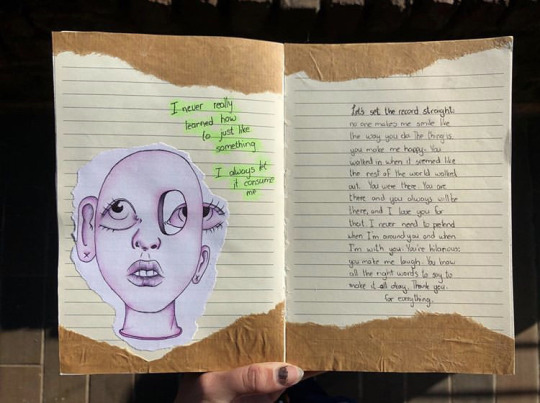 I never really
learned how
to just like
something
I always let
it consume
me
Let's set the record straight:
no one makes me smile like
the way you do. The thing is
you make me happy. You
walked in when it seemed like
the rest of the world walked
out. You were there. You are
there and you always will be
there, and I love you for
that. I never need to pretend
when I'm around you and when
I'm with you. You're hilarious;
you make me laugh. You know
all the right words to say to
make it all okay. Thank you
for everything.